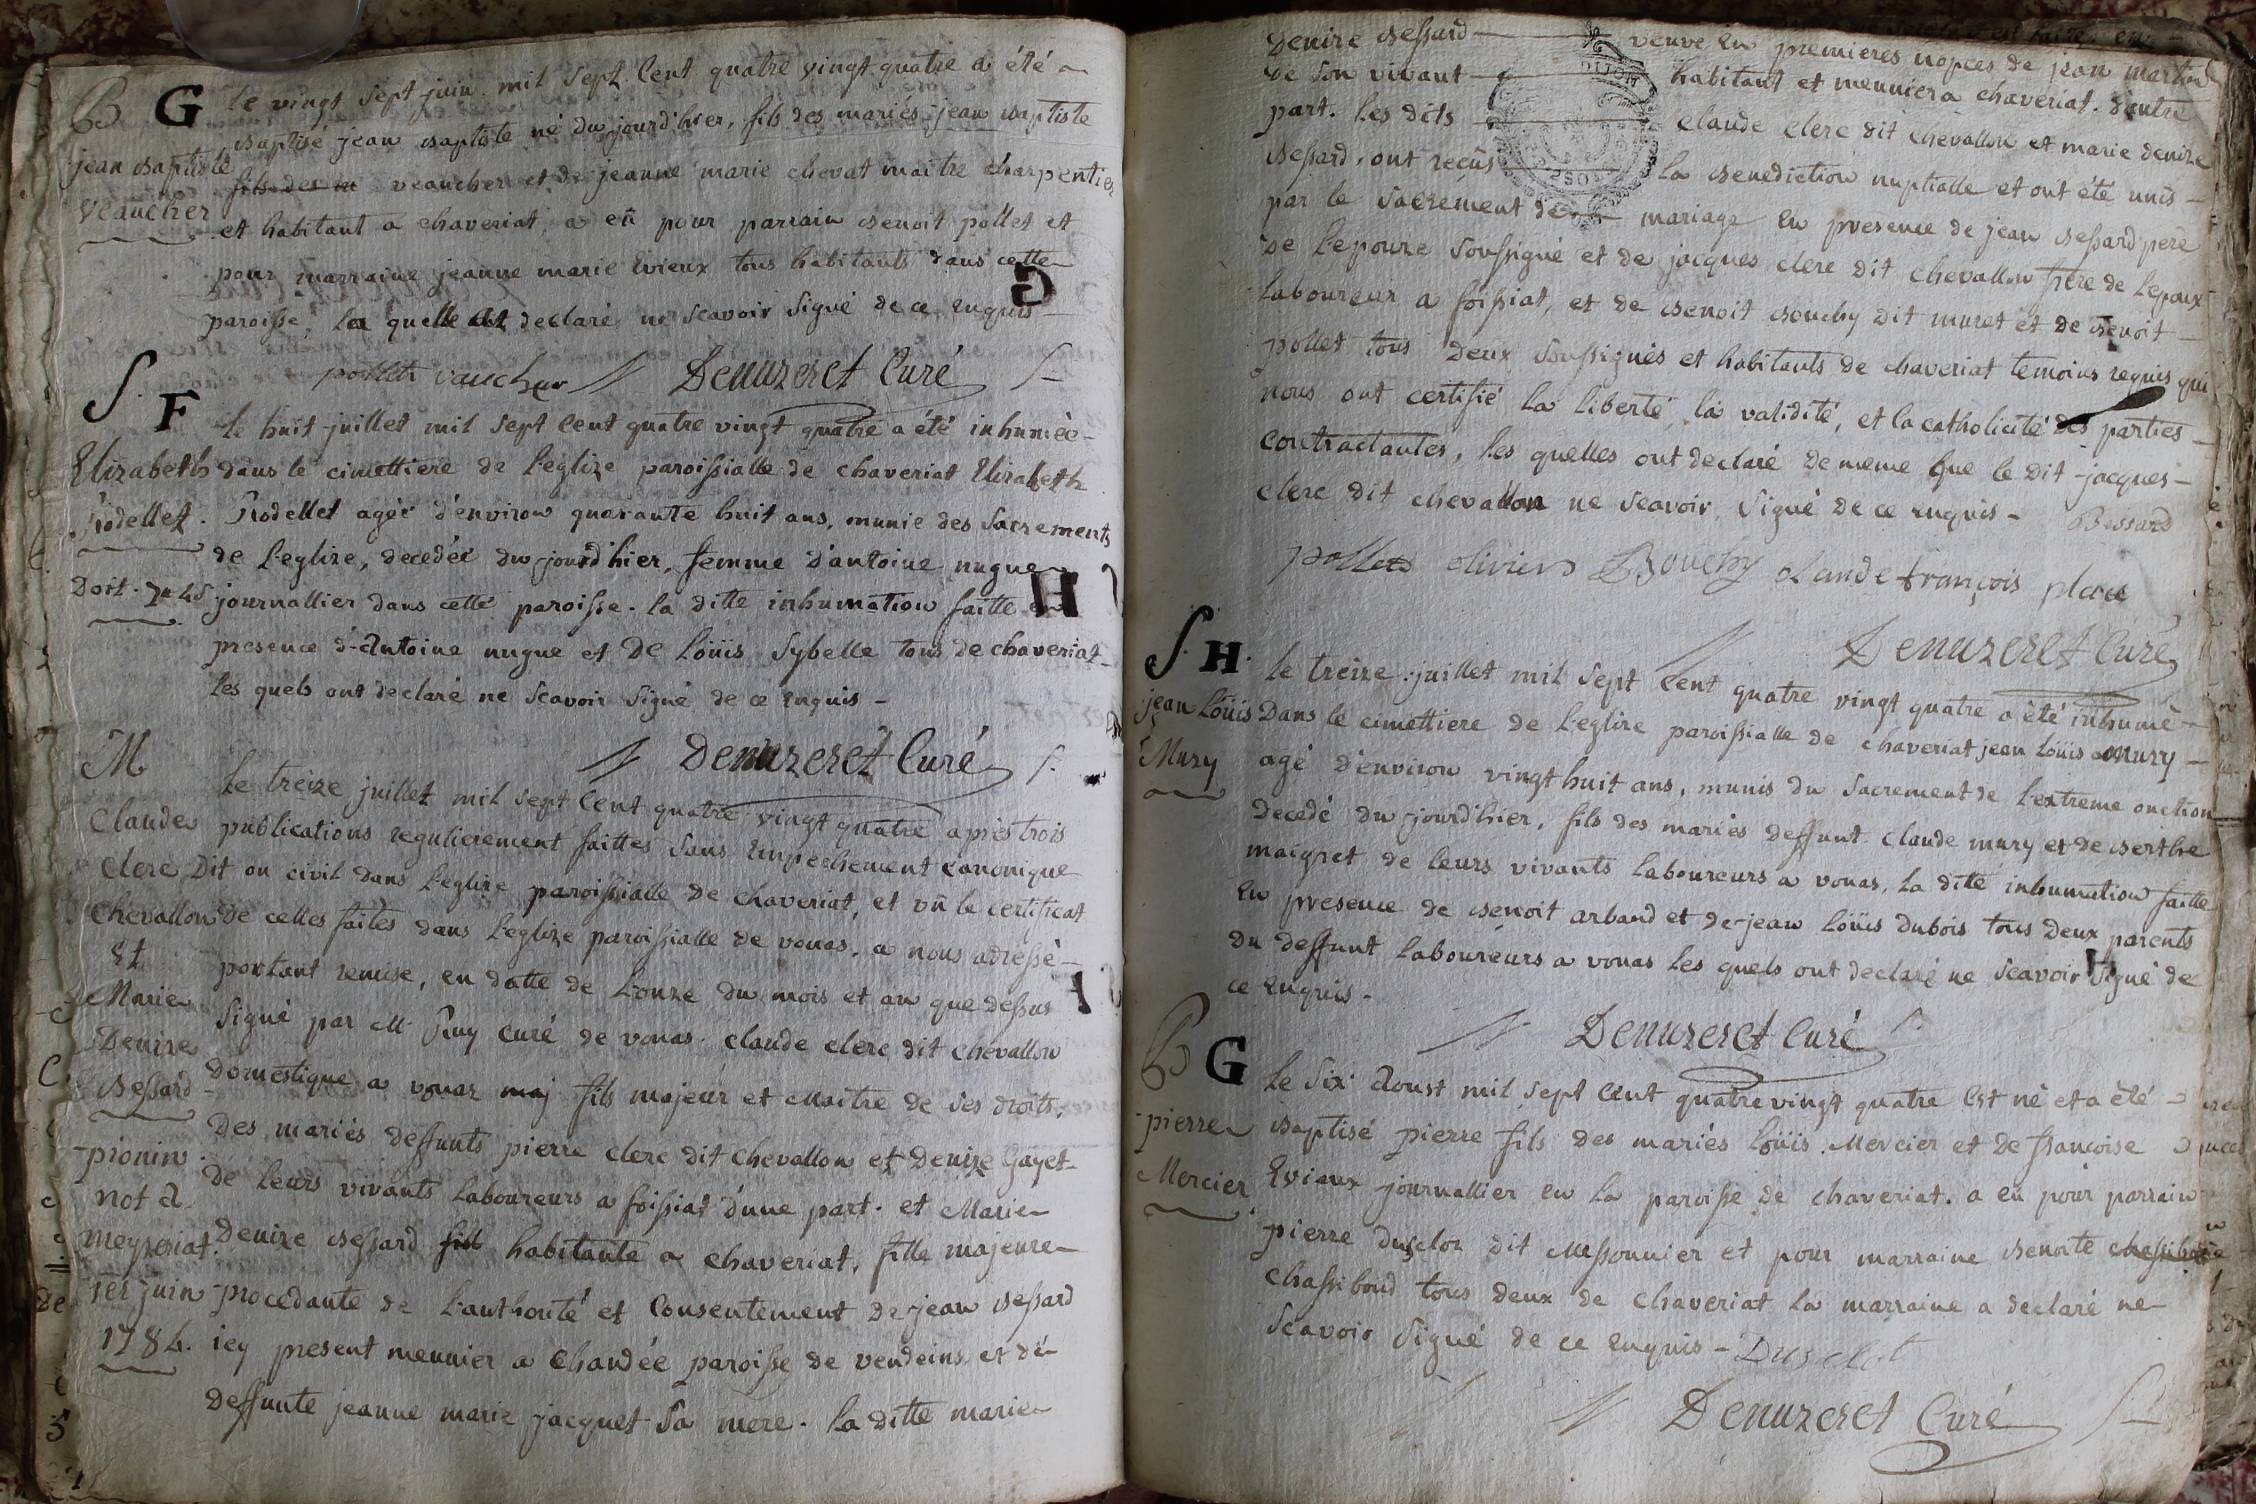 B G le vingt sept juin mil sept Cent quatre vingt quatre a été
baptisé jean baptiste né du jourd'hier, fils des mariés jean baptiste
jean baptiste fils des m veaucher et de jeanne marie chevat maitre charpentier
veaucher et habitant a chaveriat, a eû pour parrain benoit pollet et
pour marraine jeanne marie Evieux tous habitants dans cette
G
paroisse, la quelle a declaré ne scavoir signé de ce enquis
pollet vaucher Denuzeret Curé
S. F le huit juillet mil sept Cent quatre vingt quatre a été inhumée
Elizabeth dans le cimettiere de l'eglize paroissialle de chaveriat Elizabeth
Rodellet. Rodellet agée d'environ quarante huit ans, munie des Sacrements
de l'eglize, decedée du jourd'hier, femme d'antoine nugue
Doit journallier dans cette paroisse. la ditte inhumation faitte en
H
presence d'Antoine nugue et De Loüis Sybelle tous de chaveriat
les quels ont declaré ne scavoir signé de ce enquis
Denuzeret Curé
M le treize juillet mil sept Cent quatre vingt quatre après trois
Claude publications regulierement faittes sans empechement canonique
Clerc Dit ou civil dans l'eglize paroissialle de chaveriat, et vû le certificat
Chevallon de celles faites dans l'eglize paroissialle de vonas, a nous adressé
Et portant remise, en datte de L'onze du mois et an que dessus
Marie signé par M. Ruy curé de vonas. claude clerc dit chevallon
Denize domestique a vonaz maj fils majeur et maitre de ses droits,
Bessard des mariés deffunts pierre clerc dit chevallon et Denize Gayet
pionin de leurs vivants laboureurs a foissiat d'une part. et Marie
not a Denize Bessard fill habitante a chaveriat, fille majeure
meyzeriat. procedante de l'authorité et Consentement de jean Bessard
1er juin icy present meunier a Chandée paroisse de vendeins, et de
1784. deffunte jeanne marie jacquet sa mere. la ditte marie
Denize Bessard veuve en premieres nopces de jean martin
de son vivant habitant et meunier a chaveriat. d'autre
part. les dits claude clerc dit chevallon et marie denize
Bessard, ont reçûs la Benediction nuptialle et ont été unis
par le sacrement de mariage en presence de jean Bessard pere
de l'epouze soussigné et de jacques clerc dit chevallon frere de l'epoux
laboureur a foissiat, et de benoit bouchy dit muret et de benoit
pollet tous deux soussignés et habitants de chaveriat temoins requis qui
nous ont certifié la liberté, la validité, et la catholicité des parties
contractantes, les quelles ont declaré de meme que le dit jacques
clerc dit chevallon ne scavoir signé de ce enquis Bessard
pollet olivier Bouchy claude françois
Denuzeret Curé
S. H. le treize juillet mil sept Cent quatre vingt quatre a été inhumé
jean Loüis Dans le cimettiere de l'eglize paroissialle de chaveriat jean Loüis Mury
Mury agé d'environ vingt huit ans, munis du sacrement de l'extreme onction
decedé du jourd'hier, fils des mariés deffunt claude mury et de berthe
maigret de leurs vivants laboureurs a vonas, la ditte inhumation faitte
en presence de benoit arband et de jean Loüis Dubois tous deux parents
du deffunt laboureurs a vonas les quels ont declaré ne scavoir signé de
H
ce enquis.
Denuzeret Curé
B G le six Aoust mil sept Cent quatre vingt quatre est né et a été
pierre baptisé pierre fils des mariés Loüis Mercier et De françoise
Mercier Evieux journallier en la paroisse de chaveriat. a eû pour parrain
pierre Dusclor dit Messonnier et pour marraine benoite
chassibond tous deux de chaveriat la marraine a declaré ne
scavoir signé de ce enquis
Denuzeret Curé